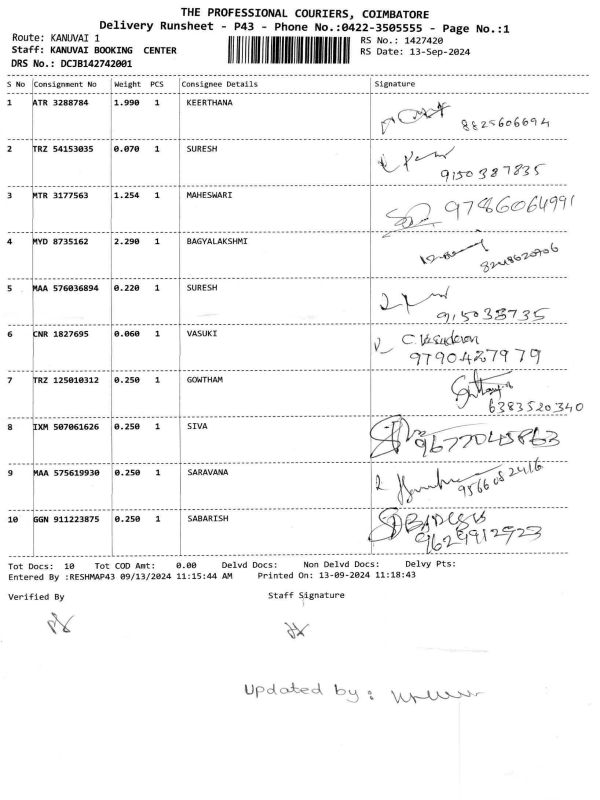 THE PROFESSIONAL COURIERS, COIMBATORE
Delivery Runsheet - P43 - Phone No.:0422-3505555 - Page No.:1
Route: KANUVAI 1 RS No.: 1427420
Staff: KANUVAI BOOKING CENTER RS Date: 13-Sep-2024
DRS No.: DCJB142742001
S No Consignment No Weight PCS Consignee Details Signature
1 ATR 3288784 1.990 1 KEERTHANA
8825606694
2 TRZ 54153035 0.070 1 SURESH
9150387835
3 MTR 3177563 1.254 1 MAHESWARI
9786064991
4 MYD 8735162 2.290 1 BAGYALAKSHMI
5 MAA 576036894 0.220 1 SURESH
915038735
6 CNR 1827695 0.060 1 VASUKI
9790427979
7 TRZ 125010312 0.250 1 GOWTHAM
6383520340
8 IXM 507061626 0.250 1 SIVA
9677045863
9 MAA 575619930 0.250 1 SARAVANA
9566082416
10 GGN 911223875 0.250 1 SABARISH
9629912923
Tot Docs: 10 Tot COD Amt: 0.00 Delvd Docs: Non Delvd Docs: Delvy Pts:
Entered By :RESHMAP43 09/13/2024 11:15:44 AM Printed On: 13-09-2024 11:18:43
Verified By Staff Signature
Updated by :